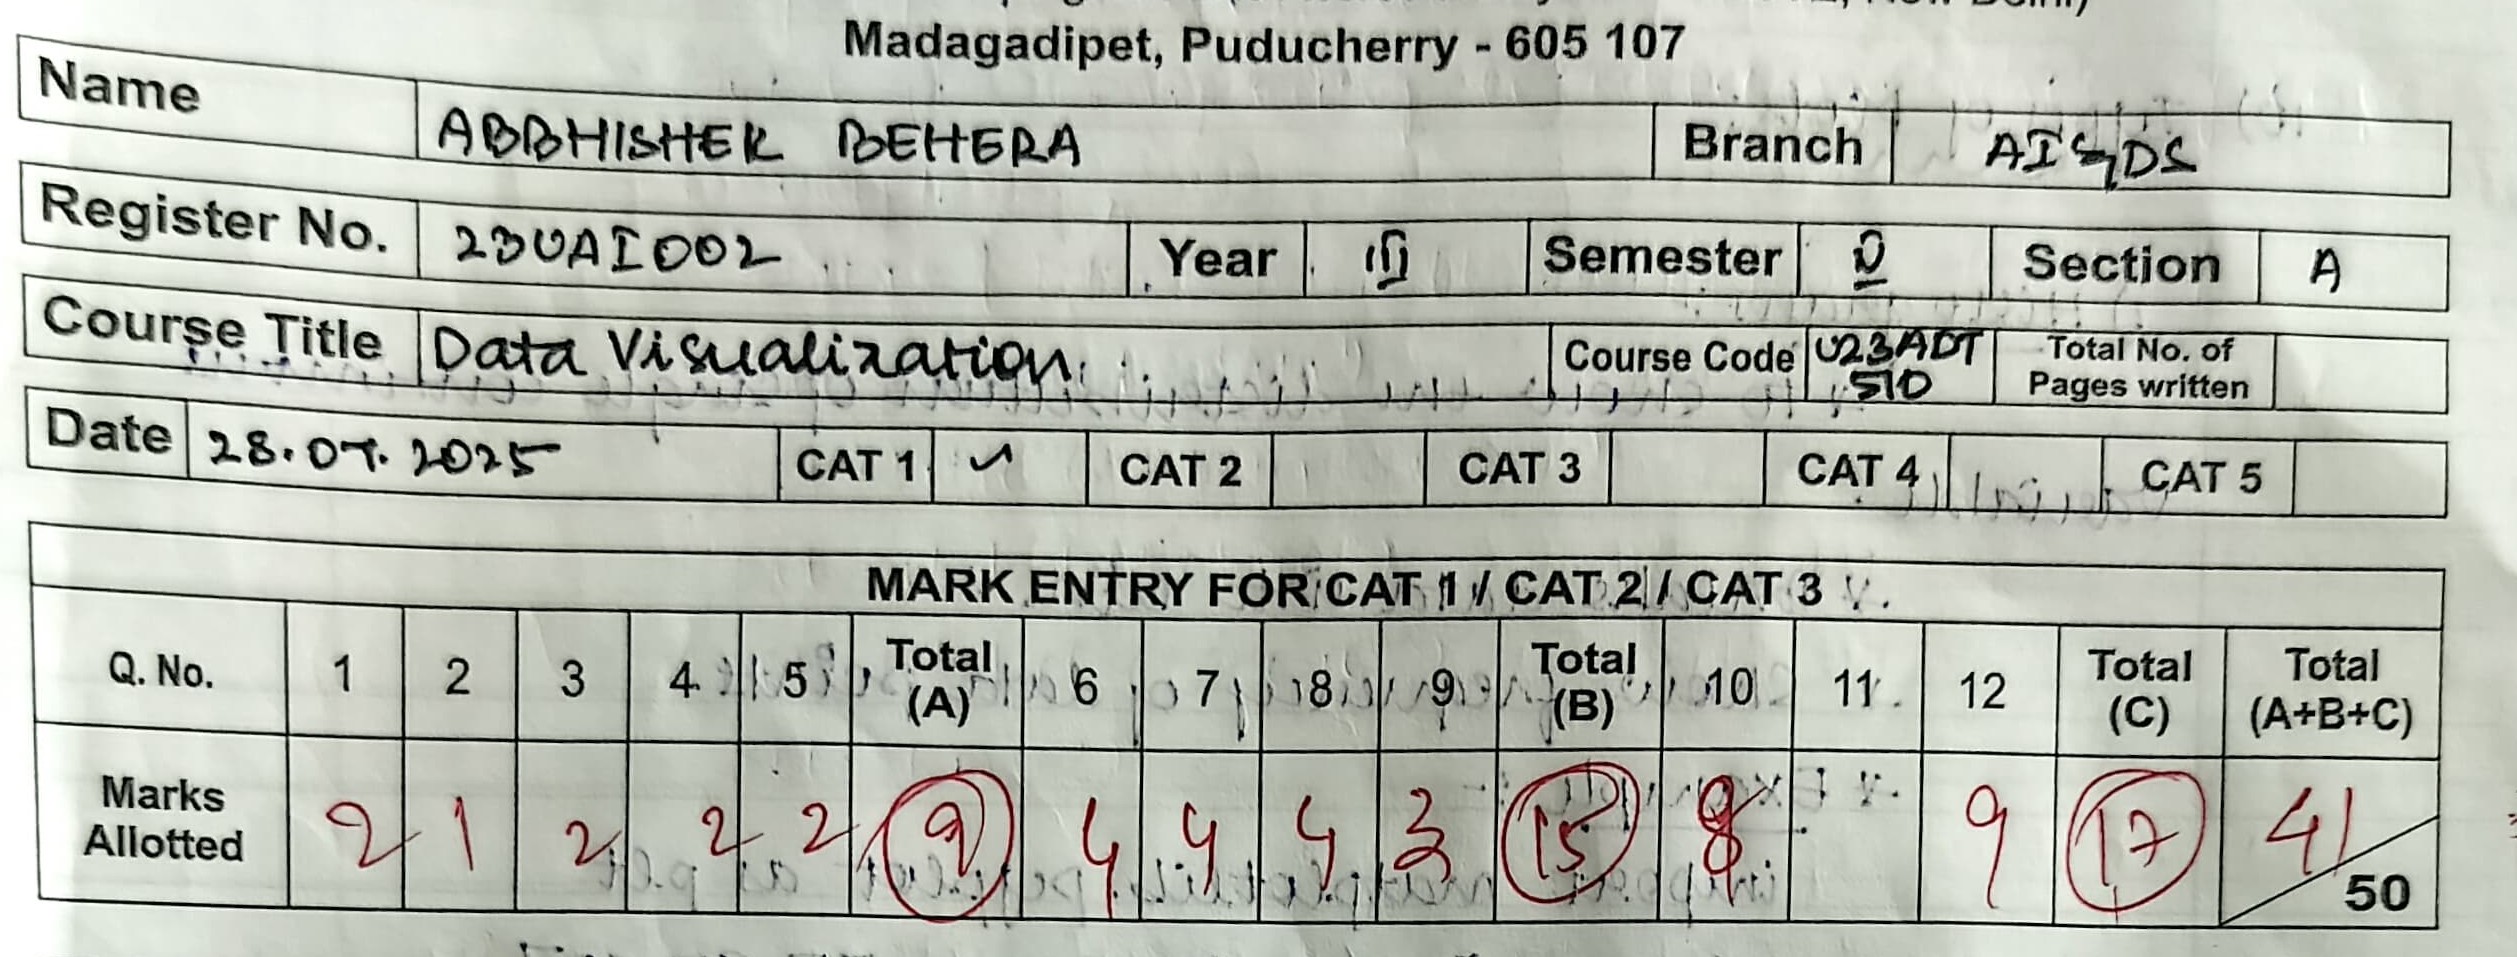 Madagadipet, Puducherry - 605 107
Name ABBHISHEK BEHERA Branch AI&DS
Register No. 23UAI002 Year III Semester V Section A
Course Title Data Visualization Course Code U23ADT510 Total No. of Pages written
Date 28.07.2025 CAT 1 ✓ CAT 2 CAT 3 CAT 4 CAT 5
MARK ENTRY FOR CAT 1 / CAT 2 / CAT 3
Q. No. 1 2 3 4 5 Total (A) 6 7 8 9 Total (B) 10 11 12 Total (C) Total (A+B+C)
Marks Allotted 2 1 2 2 2 9 4 4 4 3 15 8 9 17 41/50